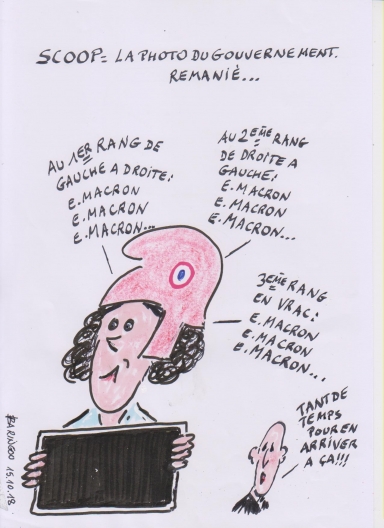 SCOOP = LA PHOTO DU GOUVERNEMENT.
REMANIÉ...
AU 1ER RANG DE
GAUCHE A DROITE:
E.MACRON
E.MACRON
E.MACRON...
AU 2EME RANG
DE DROITE A
GAUCHE:
E.MACRON
E.MACRON
E.MACRON...
3EME RANG
EN VRAC:
E.MACRON
E.MACRON
E.MACRON...
TANT DE
TEMPS
POUR EN
ARRIVER
A ÇA!!!
BARINGOO 15.10.18